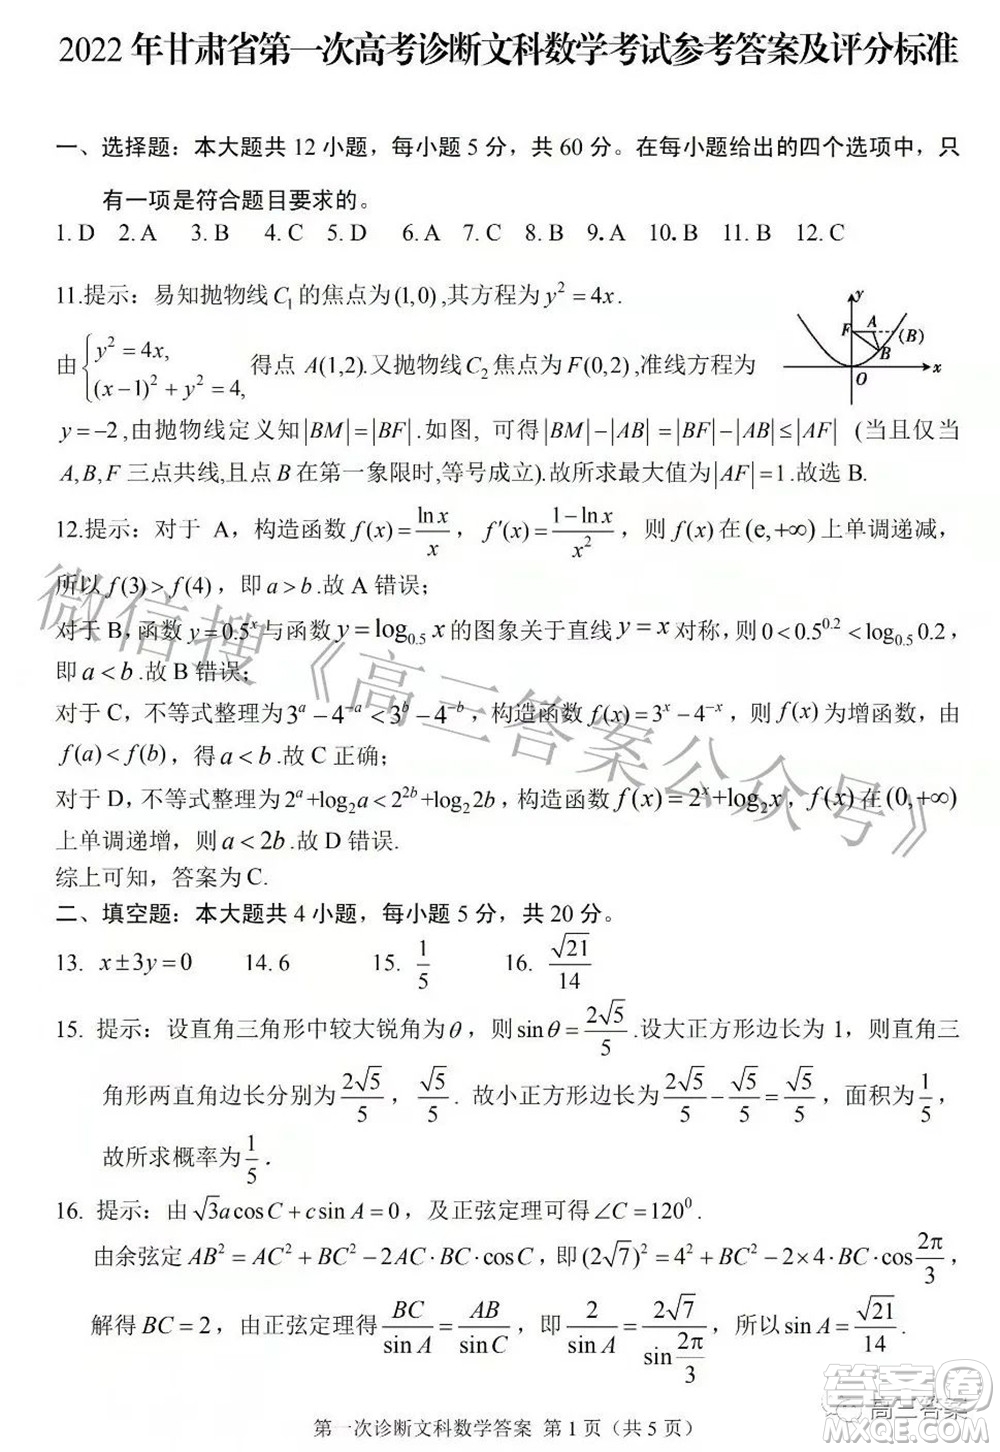 2022 年甘肃省第一次高考诊断文科数学考试参考答案及评分标准
一、选择题：本大题共 12 小题，每小题 5 分，共 60 分。在每小题给出的四个选项中，只
有一项是符合题目要求的。
1. D 2. A 3. B 4. C 5. D 6. A 7. C 8. B 9. A 10. B 11. B 12. C
11.提示：易知抛物线 C₁ 的焦点为(1,0),其方程为 y² = 4x .
由 { y² = 4x, (x−1)² + y² = 4, 得点 A(1,2).又抛物线 C₂ 焦点为 F(0,2) ,准线方程为
y
F A (B)
B
O x
y = −2 ,由抛物线定义知|BM| = |BF| .如图, 可得|BM| − |AB| = |BF| − |AB| ≤ |AF| (当且仅当
A, B, F 三点共线,且点 B 在第一象限时,等号成立).故所求最大值为|AF| = 1.故选 B.
12.提示：对于 A，构造函数 f(x) = ln x / x ，f′(x) = (1 − ln x) / x² ，则 f(x) 在 (e, +∞) 上单调递减，
所以 f(3) > f(4) ，即 a > b .故 A 错误；
对于 B,函数 y = 0.5ˣ 与函数 y = log₀.₅ x 的图象关于直线 y = x 对称，则 0 < 0.5^0.2 < log₀.₅ 0.2，
即 a < b .故 B 错误；
对于 C，不等式整理为 3^a − 4^−a < 3^b − 4^−b ，构造函数 f(x) = 3^x − 4^−x ，则 f(x) 为增函数，由
f(a) < f(b)，得 a < b .故 C 正确；
对于 D，不等式整理为 2^a + log₂a < 2^2b + log₂2b ，构造函数 f(x) = 2^x + log₂x ，f(x) 在 (0, +∞)
上单调递增，则 a < 2b .故 D 错误.
综上可知，答案为 C.
二、填空题：本大题共 4 小题，每小题 5 分，共 20 分。
13. x ± 3y = 0 14. 6 15. 1/5 16. √21/14
15. 提示：设直角三角形中较大锐角为 θ ，则 sin θ = 2√5/5 .设大正方形边长为 1，则直角三
角形两直角边长分别为 2√5/5 ，√5/5 . 故小正方形边长为 2√5/5 − √5/5 = √5/5 ，面积为 1/5 ，
故所求概率为 1/5 .
16. 提示：由 √3a cos C + c sin A = 0 ，及正弦定理可得 ∠C = 120⁰ .
由余弦定 AB² = AC² + BC² − 2AC · BC · cos C ，即 (2√7)² = 4² + BC² − 2 × 4 · BC cos 2π/3 ，
解得 BC = 2 ，由正弦定理得 BC/sin A = AB/sin C ，即 2/sin A = 2√7/sin 2π/3 ，所以 sin A = √21/14 .
第一次诊断文科数学答案 第 1 页（共 5 页）
微信搜《高三答案公众号》
高三答案
答案圈
MXQE.COM